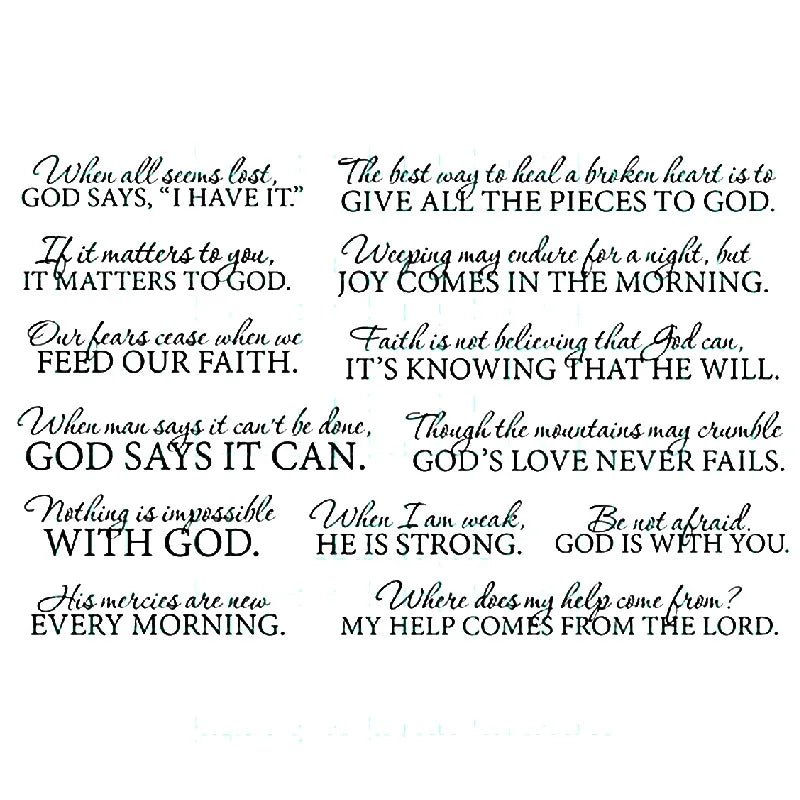 When all seems lost,
GOD SAYS, “I HAVE IT.”
The best way to heal a broken heart is to
GIVE ALL THE PIECES TO GOD.
If it matters to you,
IT MATTERS TO GOD.
Weeping may endure for a night, but
JOY COMES IN THE MORNING.
Our fears cease when we
FEED OUR FAITH.
Faith is not believing that God can,
IT’S KNOWING THAT HE WILL.
When man says it can't be done,
GOD SAYS IT CAN.
Though the mountains may crumble
GOD’S LOVE NEVER FAILS.
Nothing is impossible
WITH GOD.
When I am weak,
HE IS STRONG.
Be not afraid.
GOD IS WITH YOU.
His mercies are new
EVERY MORNING.
Where does my help come from?
MY HELP COMES FROM THE LORD.